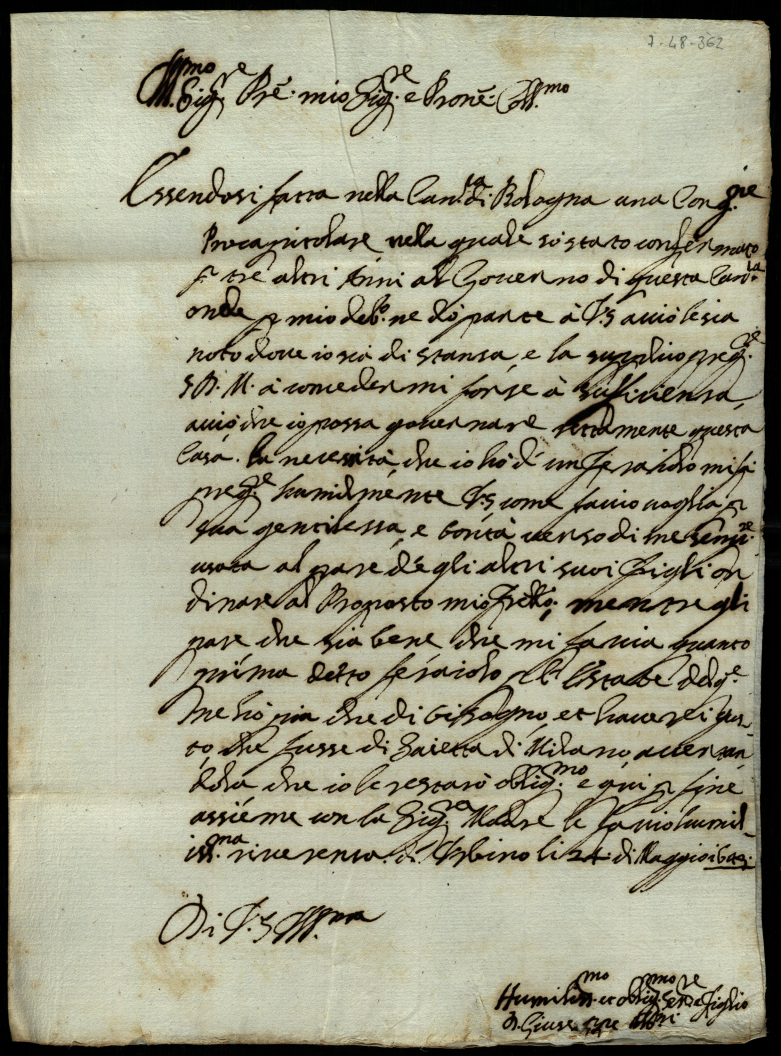 7-48-362
Ill.mo
Sig.re Prē. mio Sig.re e Pronē. Coll.mo
Essendosi fatta nella Can.ca di Bologna una Cong.ne
Procapitolare, nella quale io stato confermato
p tre altri Anni al Governo di questa Can.ca
onde p mio deb.o ne dò parte à V.S acciò le sia
noto dove io sia di stanza, e la supplico preg.re
S.D.M. à concedermi forse à sufficienza,
acciò che io possa governare rettamente questa
Casa. La necessità che io hò d'un feraiolo mi fà
preg.re humilmente V.S come faccio voglia p
sua gentilezza, e bontà verso di me semp.re
usata al pare degli altri suoi figli or
dinare al Proposto mio frēllo, mentre gli
pare che sia bene che mi faccia quanto
prima detto feraiolo p l'Estate del q.e
ne hò più che di bisogno, et haverei gus-
to che fusse di Saietta di Milano
che io le restarò oblig.mo e qui p fine
assieme con la Sig.ra Madre le faccio humil-
iss.ma riverenza. di Urbino li 24. di Maggio
Di V.S Ill.ma
Humiliss.mo et oblig.mo Ser.re e figlio
D. Giuseppe